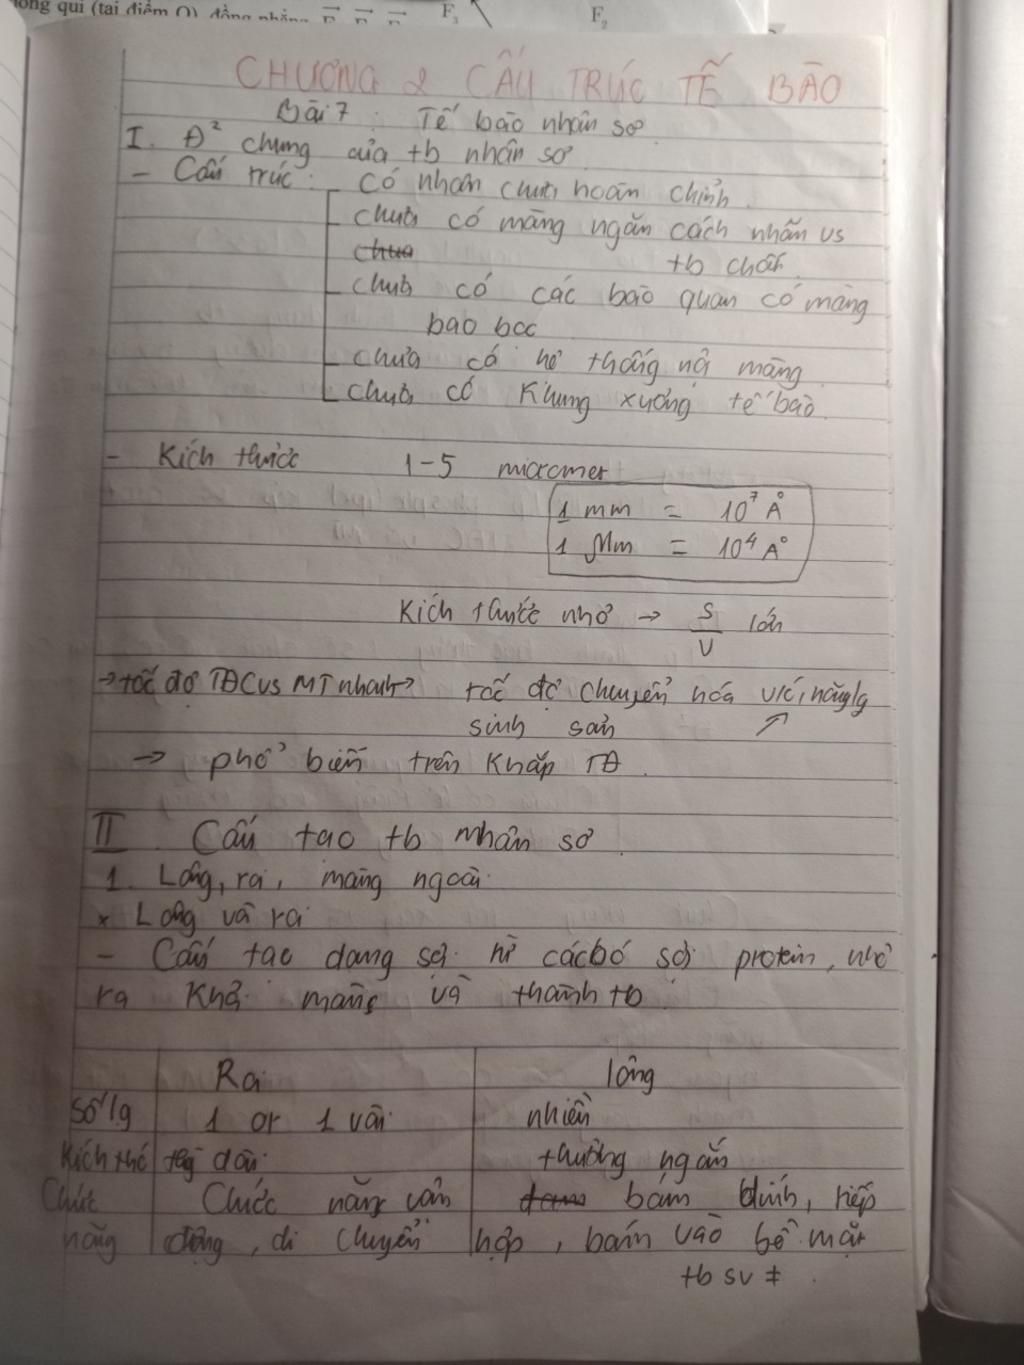 òng qui (tại điểm O), đồng phẳng F₃ F₂
CHƯƠNG 2 CẤU TRÚC TẾ BÀO
Bài 7 : Tế bào nhân sơ
I. Đ² chung của tb nhân sơ
- Cấu trúc: - có nhân chưa hoàn chỉnh.
- chưa có màng ngăn cách nhân vs
chưa tb chất.
- chưa có các bào quan có màng
bao bọc
- chưa có hệ thống nội màng.
- chưa có khung xương tế bào.
- Kích thước 1-5 micromet
1 mm = 10⁷ Å
1 µm = 10⁴ A°
Kích thước nhỏ → S/V lớn
→ tốc độ TĐC vs MT nhanh → tốc độ chuyển hóa v/c, năng lg
sinh sản ↗
→ phổ biến trên khắp TĐ.
II. Cấu tạo tb nhân sơ.
1. Lông, roi, màng ngoài.
× Lông và roi
- Cấu tạo dạng sợi. từ các bó sợi protein, nhô
ra khỏi màng và thành tb.
Roi lông
Số lg 1 or 1 vài nhiều
Kích thc dài thường ngắn
Chức Chức năng vận bám dính, tiếp
năng động, di chuyển hợp, bám vào bề mặt
tb sv ≠.